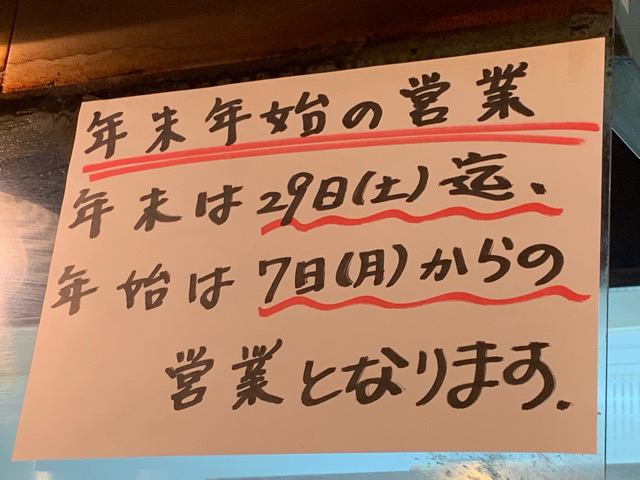 年末年始の営業
年末は29日(土)迄.
年始は7日(月)からの
営業となります.